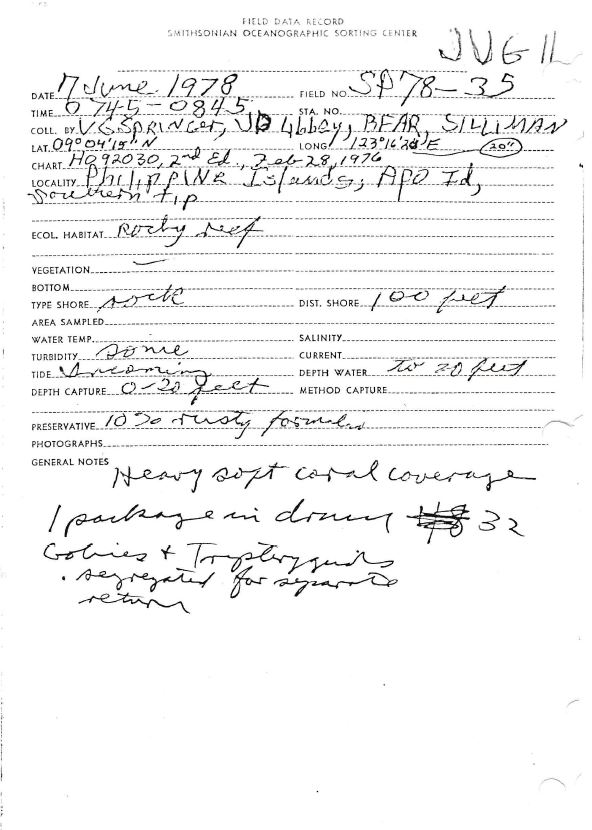 FIELD DATA RECORD
SMITHSONIAN OCEANOGRAPHIC SORTING CENTER
DATE 7 June 1978 FIELD NO. SP 78-35
TIME 0745-0845 STA. NO.
COLL. BY V.G. Springer, JD Libbey, BFAR, SILLIMAN
LAT. 09°04'15" N LONG. 123°16'20" E (20")
CHART HO 92030, 2nd Ed., Feb 28, 1976
LOCALITY Philippine Islands, Apo Id,
Southern tip
ECOL. HABITAT Rocky reef
VEGETATION —
BOTTOM
TYPE SHORE rock DIST. SHORE 100 feet
AREA SAMPLED
WATER TEMP. SALINITY
TURBIDITY some CURRENT
TIDE Incoming DEPTH WATER to 20 feet
DEPTH CAPTURE 0-20 feet METHOD CAPTURE
PRESERVATIVE 10% rusty formalin
PHOTOGRAPHS
GENERAL NOTES
Heavy soft coral coverage
1 package in drum 32
Gobies + Tripterygiids
segregated for separate
return